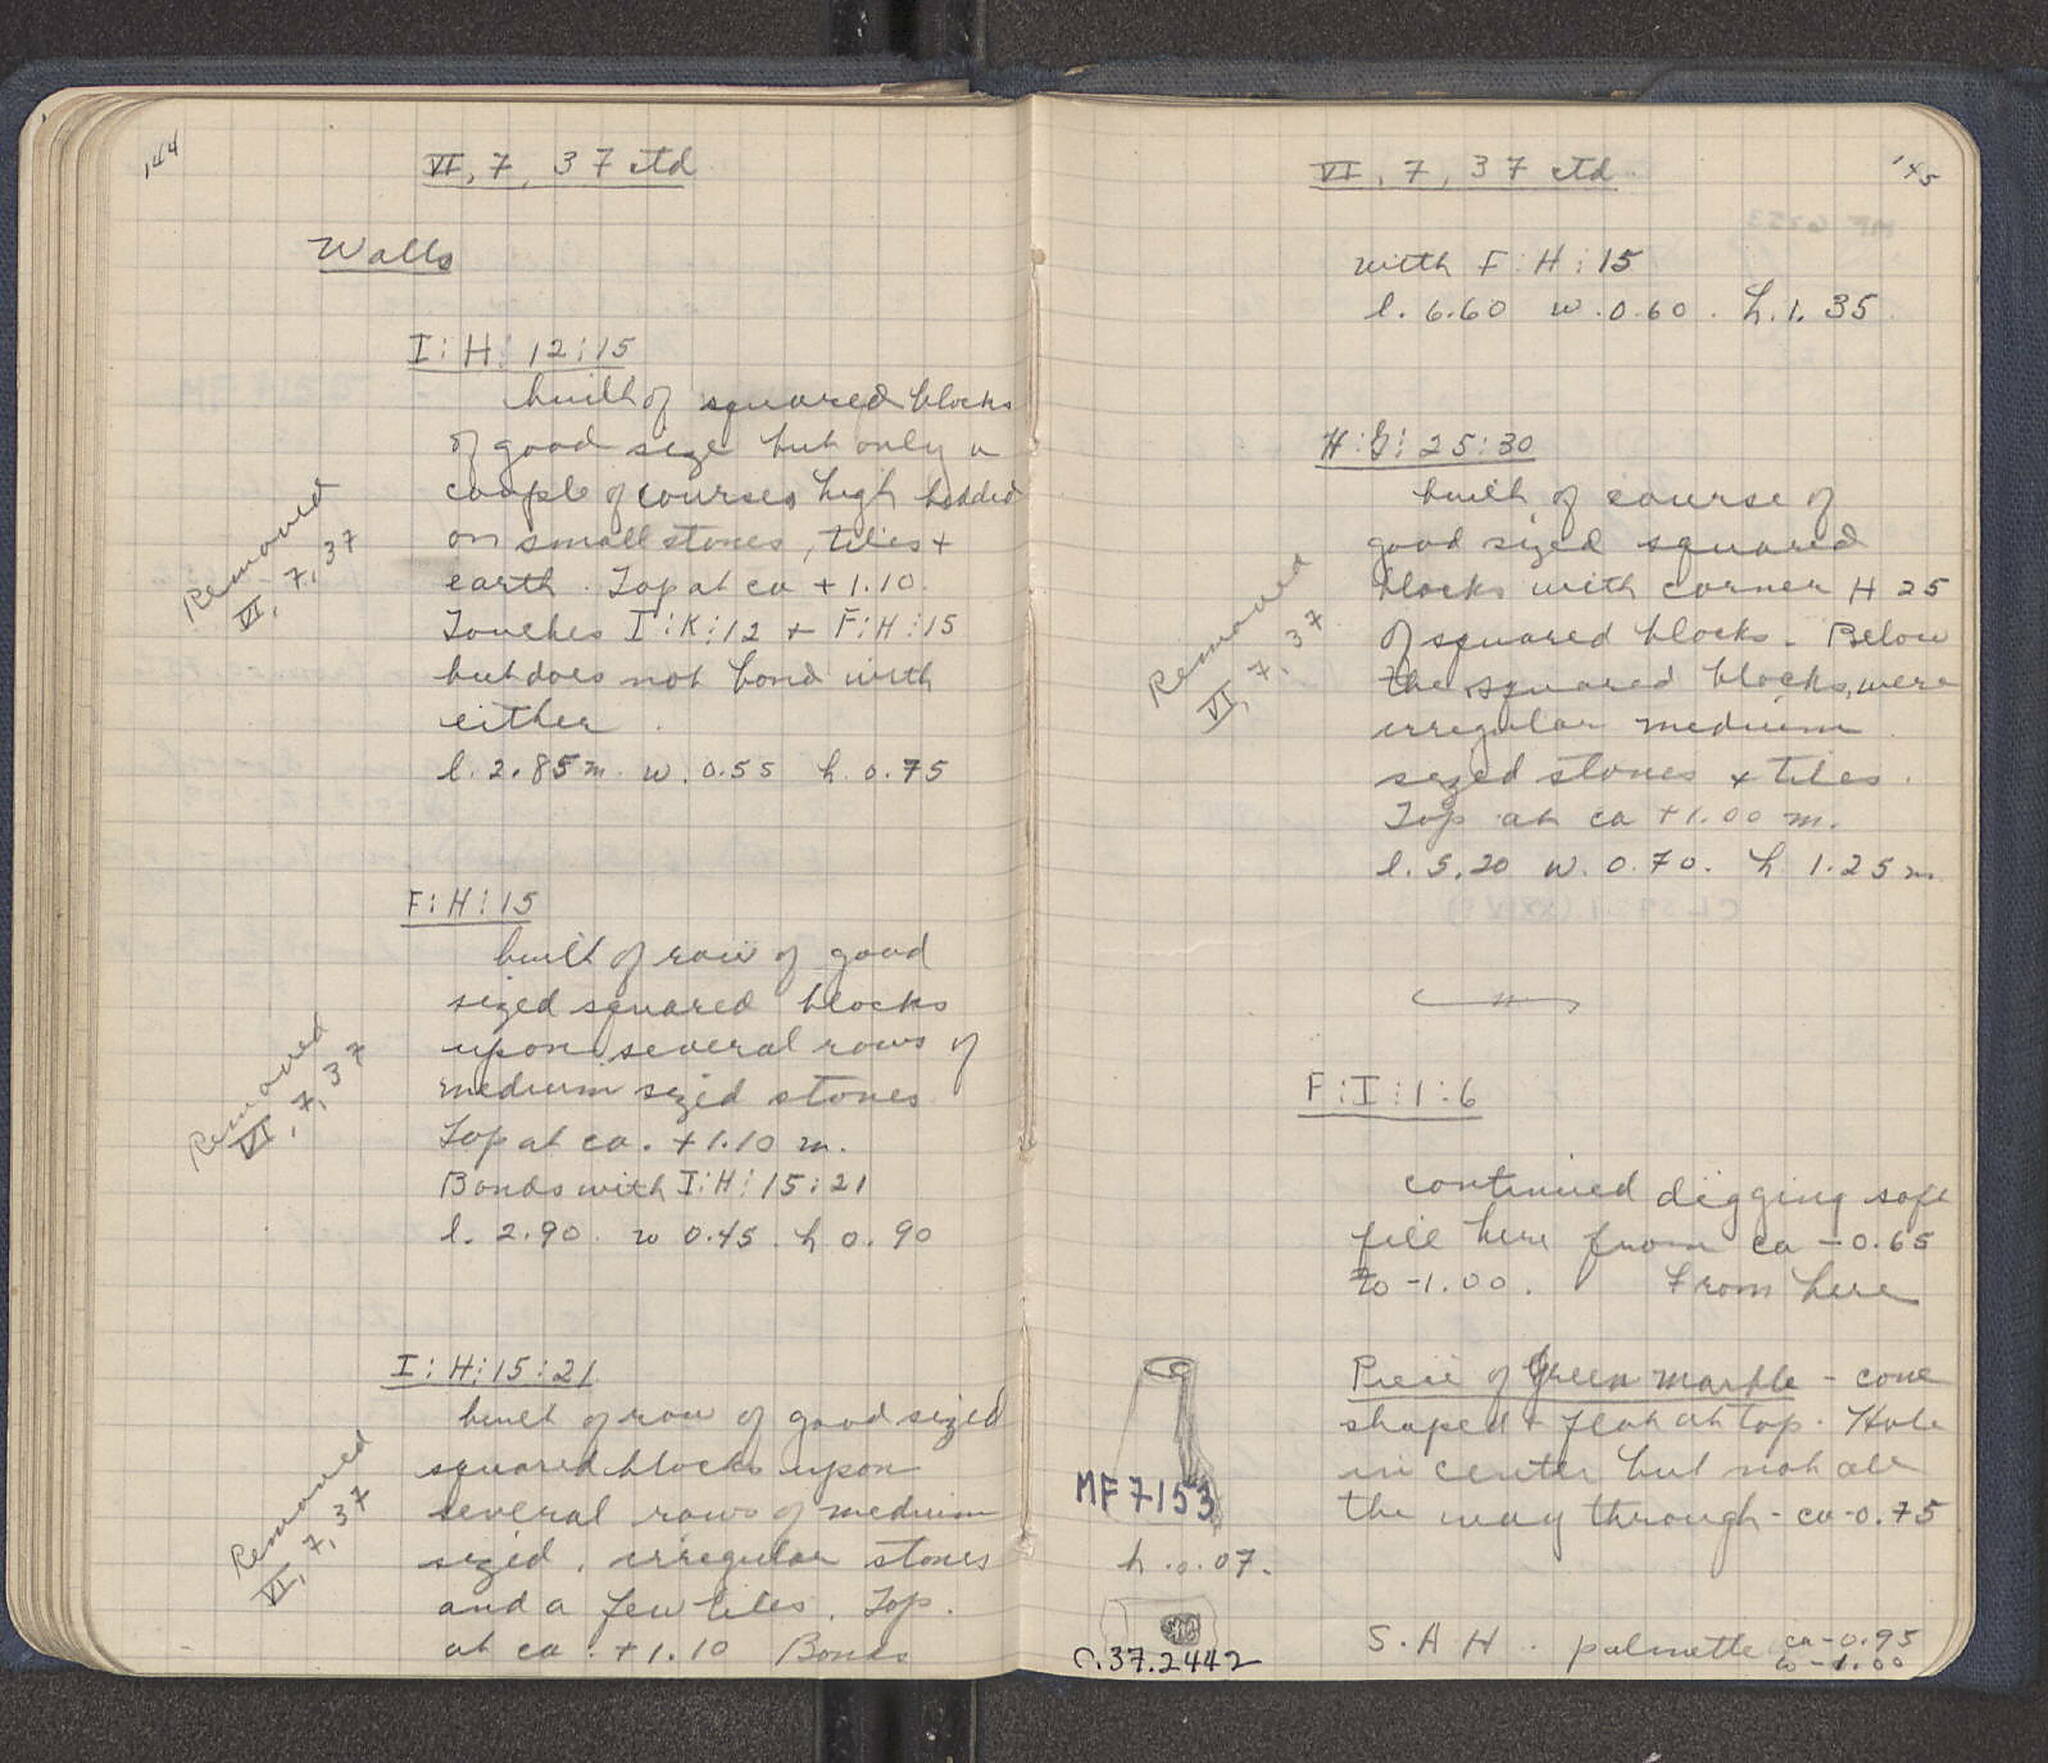 144
VI, 7, 37 ctd
Walls
I:H:12:15
built of squared blocks
of good size but only a
couple of courses high bedded
on small stones, tiles +
earth. Top at ca + 1.10.
Touches I:K:12 + F:H:15
but does not bond with
either.
l. 2.85 m. w. 0.55 h. 0.75
Removed
VI, 7, 37
F:H:15
built of row of good
sized squared blocks
upon several rows of
medium sized stones
Top at ca. + 1.10 m.
Bonds with I:H:15:21
l. 2.90. w 0.45. h 0.90
Removed
VI, 7, 37
I:H:15:21
built of row of good sized
squared blocks upon
several rows of medium
sized, irregular stones
and a few tiles. Top.
at ca. + 1.10 Bonds
Removed
VI, 7, 37
145
VI, 7, 37 ctd.
with F:H:15
l. 6.60 w. 0.60. h. 1.35
H:G:25:30
built of course of
good sized squared
blocks with corner H 25
of squared blocks. Below
the squared blocks, were
irregular medium
sized stones + tiles.
Top at ca + 1.00 m.
l. 5.20 w. 0.70. h 1.25 m
Removed
VI, 7, 37
F:I:1:6
continued digging soft
fill here from ca - 0.65
to -1.00. From here
Piece of Green marble - cone
shaped + flat at top. Hole
in center but not all
the way through - ca -0.75
MF 7153
h. 0.07.
S.A H. palmette ca -0.95
to -1.00
C.37.2442